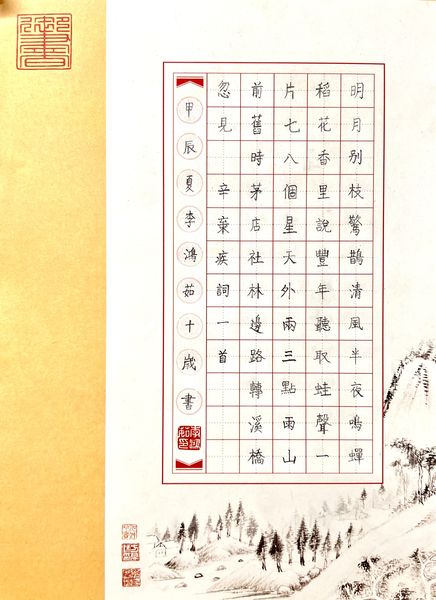 明月別枝驚鵲清風半夜鳴蟬
稻花香里說豐年聽取蛙聲一
片七八個星天外兩三點雨山
前舊時茅店社林邊路轉溪橋
忽見 辛棄疾詞一首
甲辰夏李鴻茹十歲書